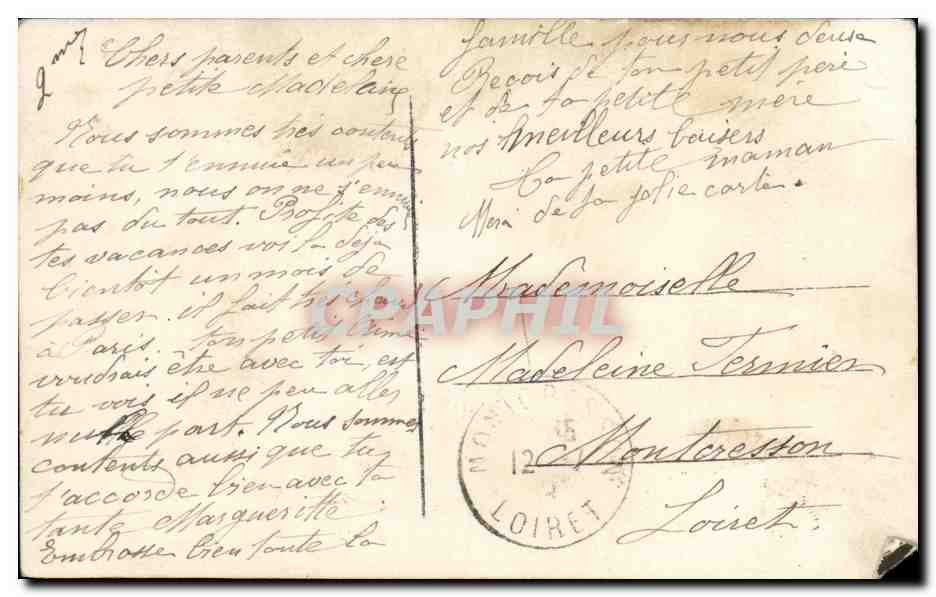 Chers parents et chère
petite Madelaine
Nous sommes très contents
que tu t'ennuie un peu
moins, nous on ne s'ennuie
pas du tout. Profite des
tes vacances voila deja
bientot un mois de
passer. il fait très chaud
à Paris. ton petit
voudrais être avec toi, et
tu vois il ne peu aller
nulle part. Nous sommes
contents aussi que tu
t'accorde bien avec ta
tante Margueritte.
Embrasse bien toute la
famille pour nous deux
Reçois de ton petit père
et de ta petite mère
nos meilleurs baisers
Ta petite maman
Merci de ta jolie carte.
CPAPHIL
Mademoiselle
Madeleine Termier
Montcresson
Loiret
12
LOIRET